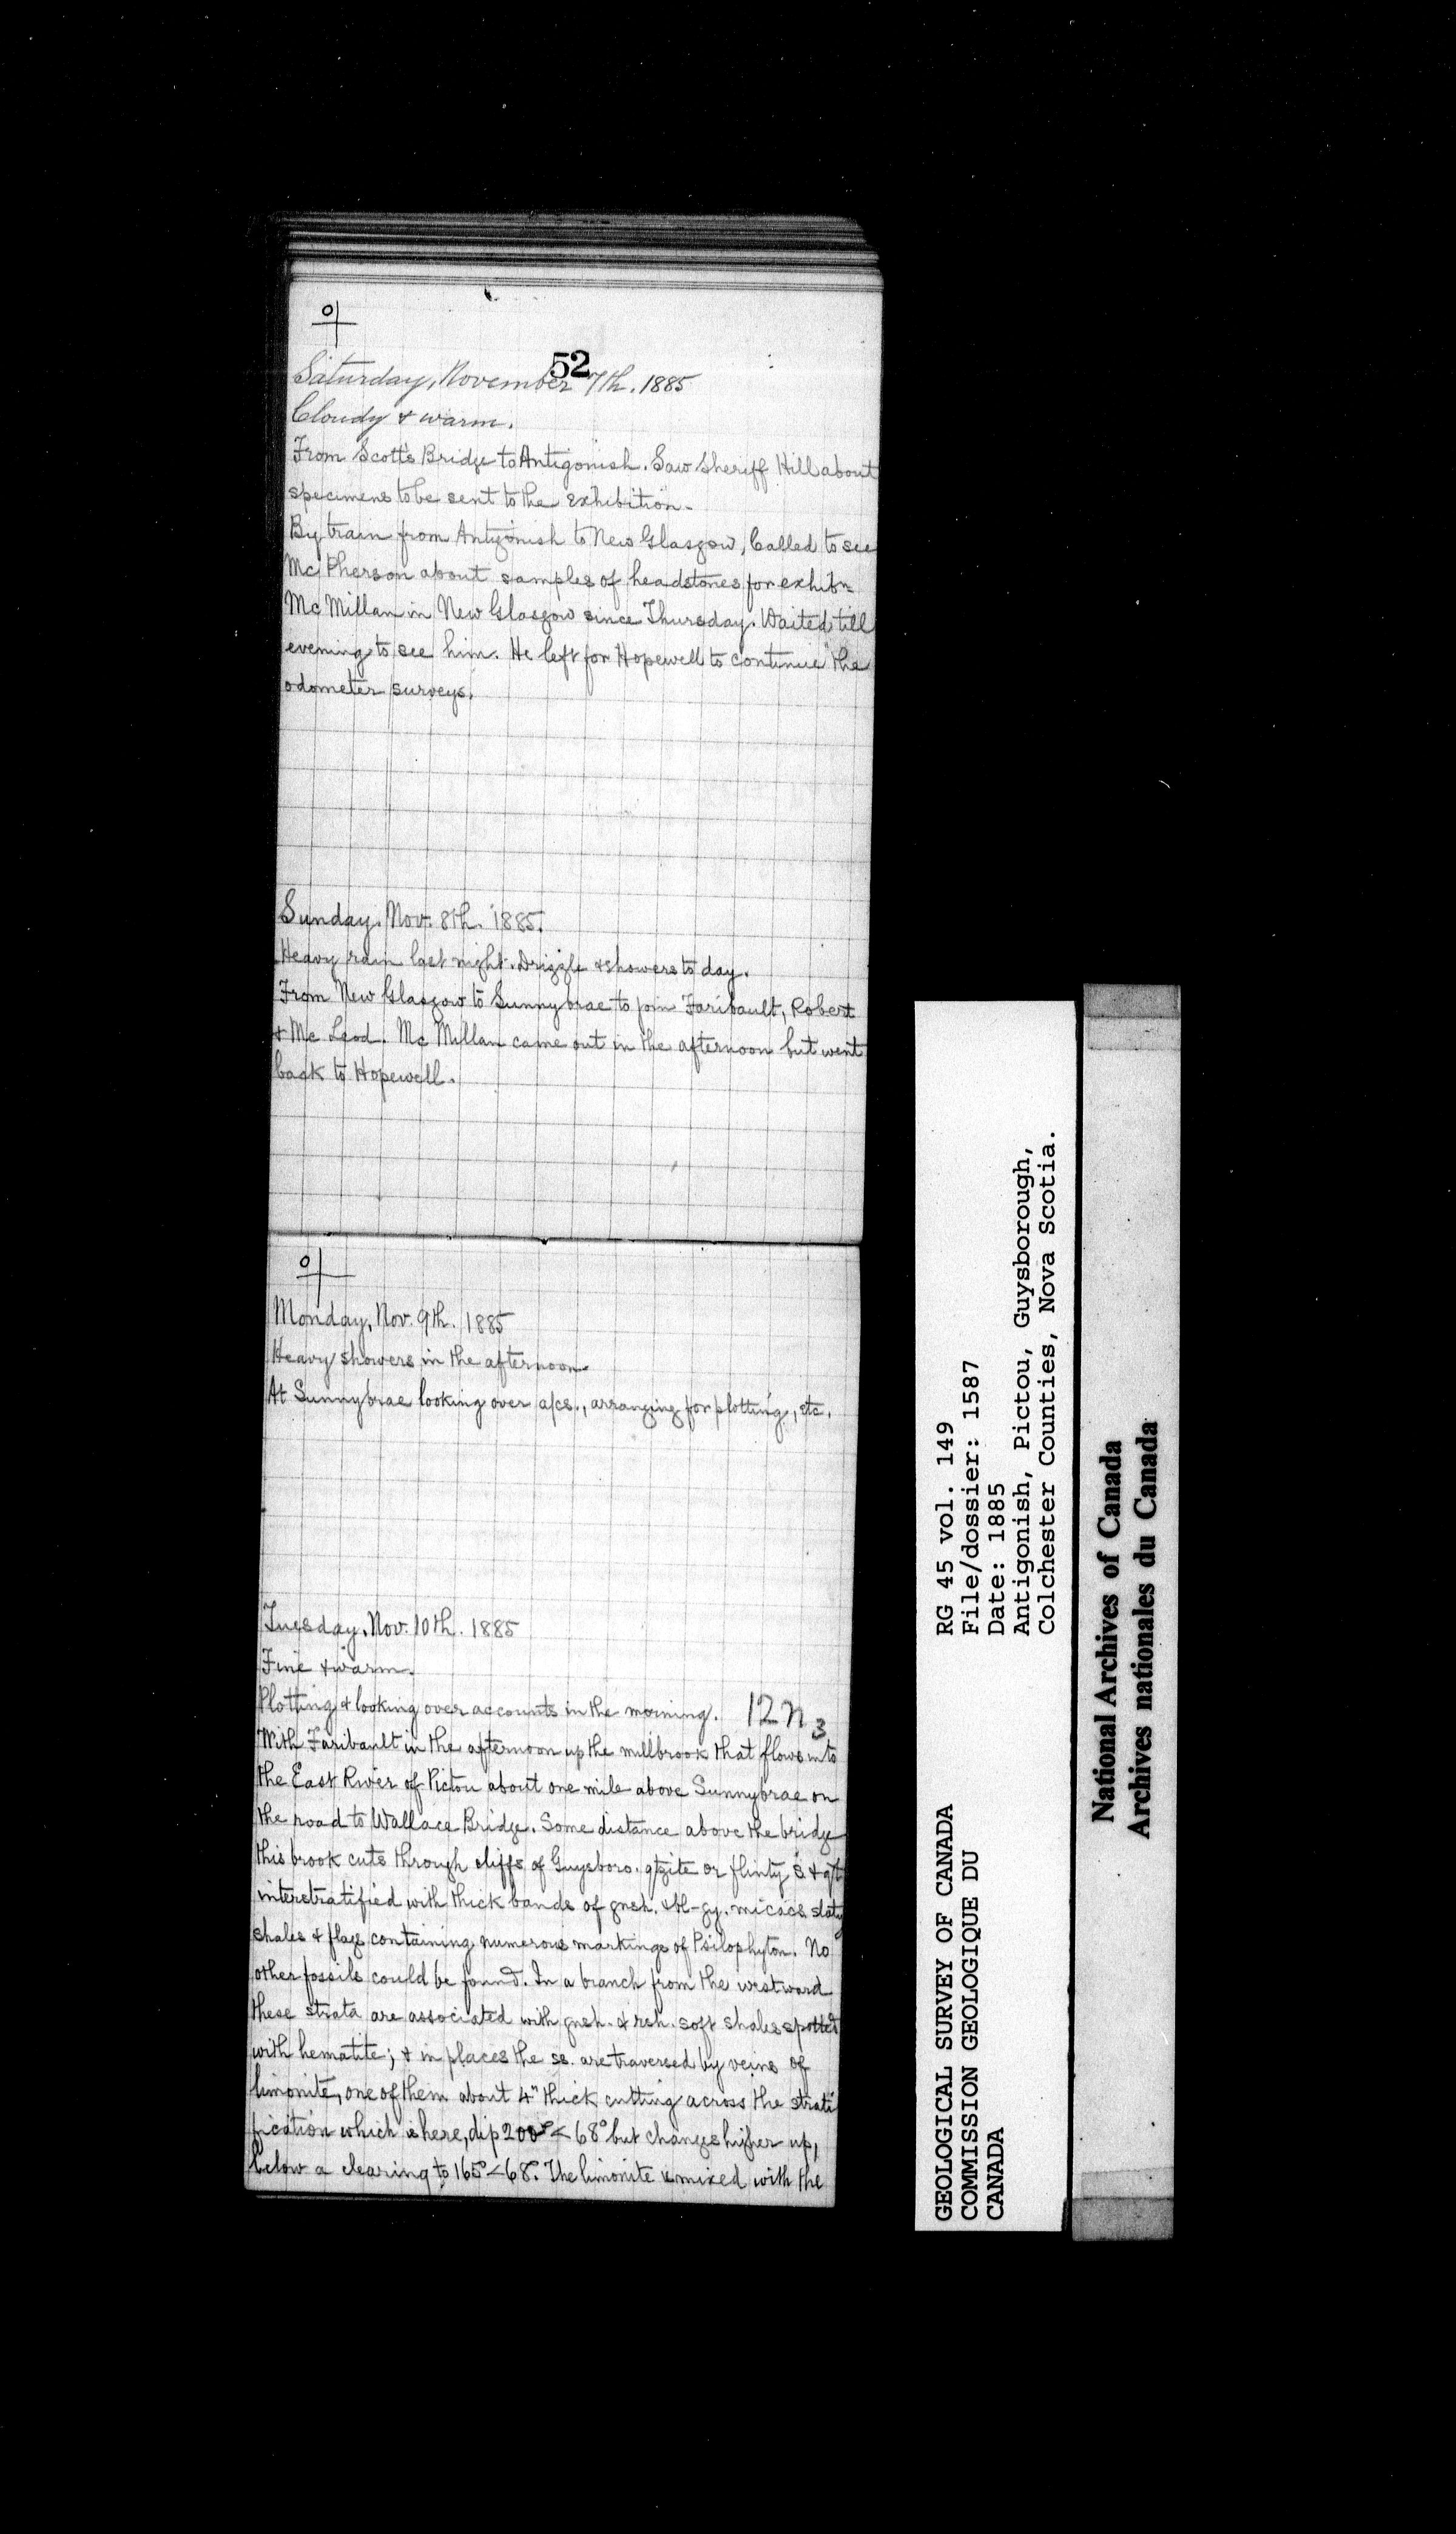 52
Saturday, November 7th. 1885
Cloudy & warm.
From Scott's Bridge to Antigonish. Saw Sheriff Hill about
specimens to be sent to the exhibition.
By train from Antigonish to New Glasgow, Called to see
McPherson about samples of headstones for exhibn
McMillan in New Glasgow since Thursday. Waited till
evening to see him. He left for Hopewell to continue the
odometer surveys.
Sunday. Nov. 8th. 1885.
Heavy rain last night. Drizzle & showers to day.
From New Glasgow to Sunnybrae to join Faribault, Robert
& McLeod. McMillan came out in the afternoon but went
back to Hopewell.
Monday, Nov. 9th. 1885
Heavy showers in the afternoon
At Sunnybrae looking over a/cs., arranging for plotting, etc.
Tuesday, Nov. 10th. 1885
Fine & warm.
Plotting & looking over accounts in the morning. 12 n 3
With Faribault in the afternoon up the millbrook that flows into
the East River of Pictou about one mile above Sunnybrae on
the road to Wallace Bridge. Some distance above the bridge
this brook cuts through cliffs of Guysboro. qtzite or flinty s &
interstratified with thick bands of gnsh. & bl-gy. micacs. slaty
shales & flags containing numerous markings of Psilophyton. No
other fossils could be found. In a branch from the westward
these strata are associated with gnsh. & rsh. soft shales spotted
with hematite; & in places the ss. are traversed by veins of
limonite, one of them about 4" thick cutting across the strati
fication which is here, dip 200° < 68° but changes higher up,
below a clearing to 165° < 68°. The limonite is mixed with the
GEOLOGICAL SURVEY OF CANADA
COMMISSION GEOLOGIQUE DU
CANADA
RG 45 vol. 149
File/dossier: 1587
Date: 1885
Antigonish, Pictou, Guysborough,
Colchester Counties, Nova Scotia.
National Archives of Canada
Archives nationales du Canada